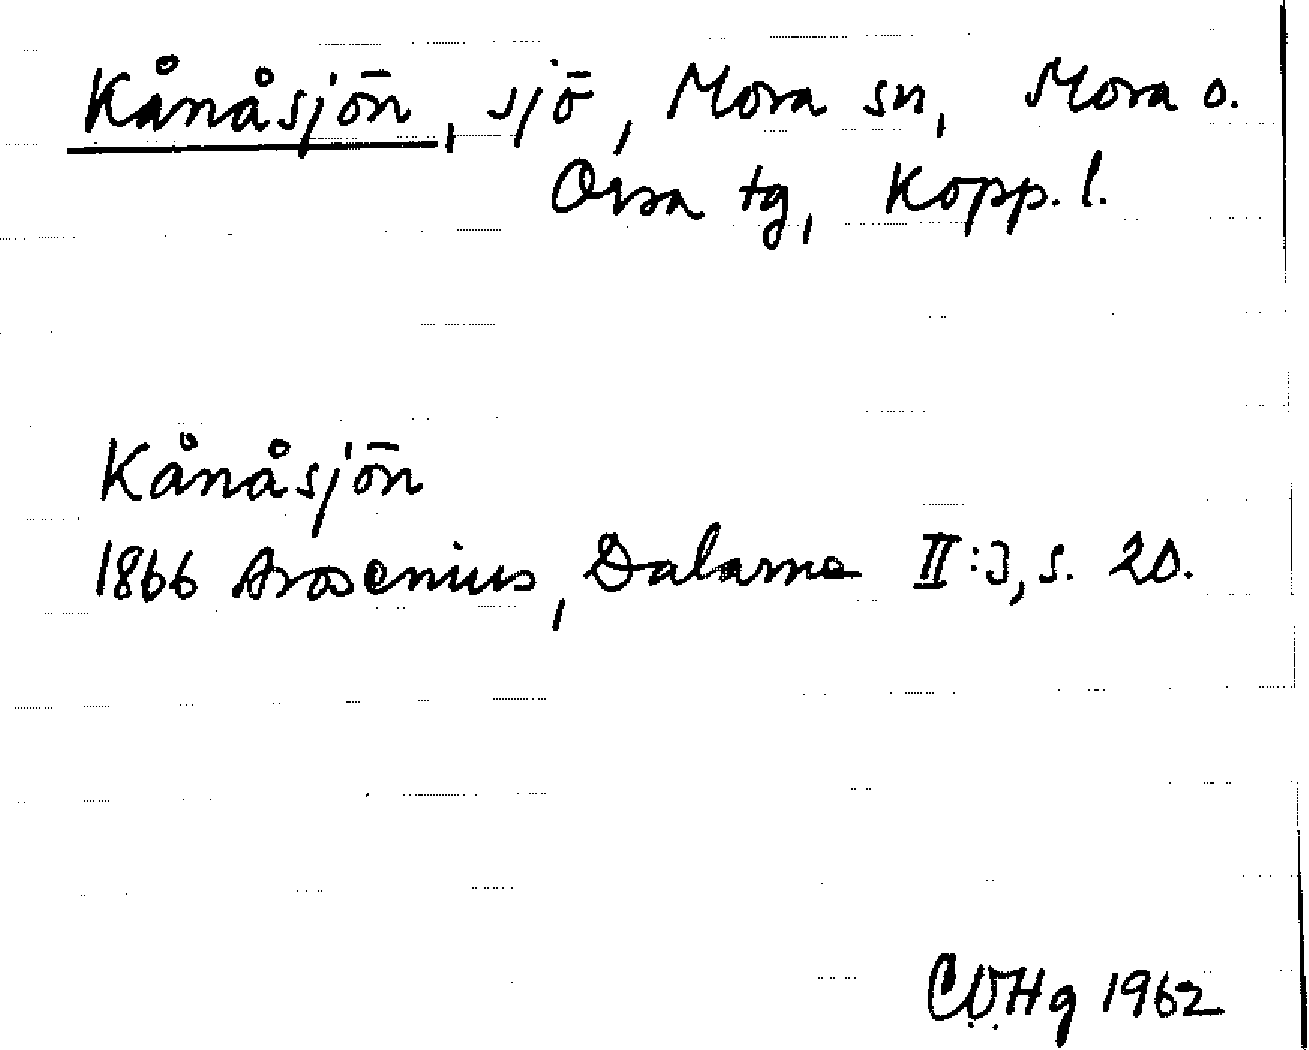 Kånåsjön, sjö, Mora sn, Mora o.
Orsa tg, Kopp. l.
Kånåsjön
1866 Arosenius, Dalarna II:3, s. 20.
CVHg 1962